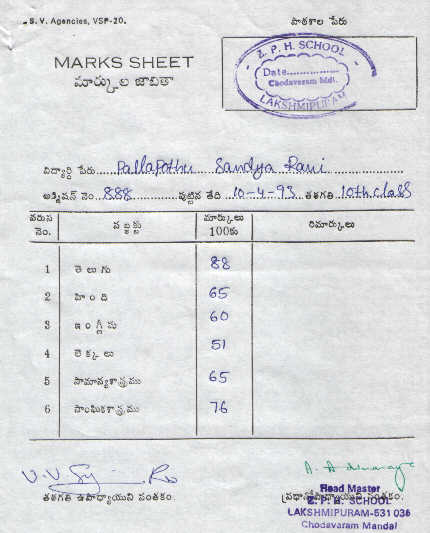 S. V. Agencies, VSP-20.
పాఠశాల పేరు
MARKS SHEET
మార్కుల జాబితా
Z. P. H. SCHOOL
Date..............
Chodavaram Mdl.
LAKSHMIPURAM
విద్యార్థి పేరు...... Pallapothu Sandya Rani
అడ్మిషన్ నెం. 888 పుట్టిన తేది 10-4-93 తరగతి 10th class
వరుస నెం. సబ్జక్టు మార్కులు 100కు రిమార్కులు
1 తెలుగు 88
2 హింది 65
3 ఇంగ్లీషు 60
4 లెక్కలు 51
5 సామాన్యశాస్త్రము 65
6 సాంఘికశాస్త్రము 76
తరగతి ఉపాధ్యాయుని సంతకం.
ప్రధానోపాధ్యాయుని సంతకం.
Head Master
Z. P. H. SCHOOL
LAKSHMIPURAM-531 036
Chodavaram Mandal